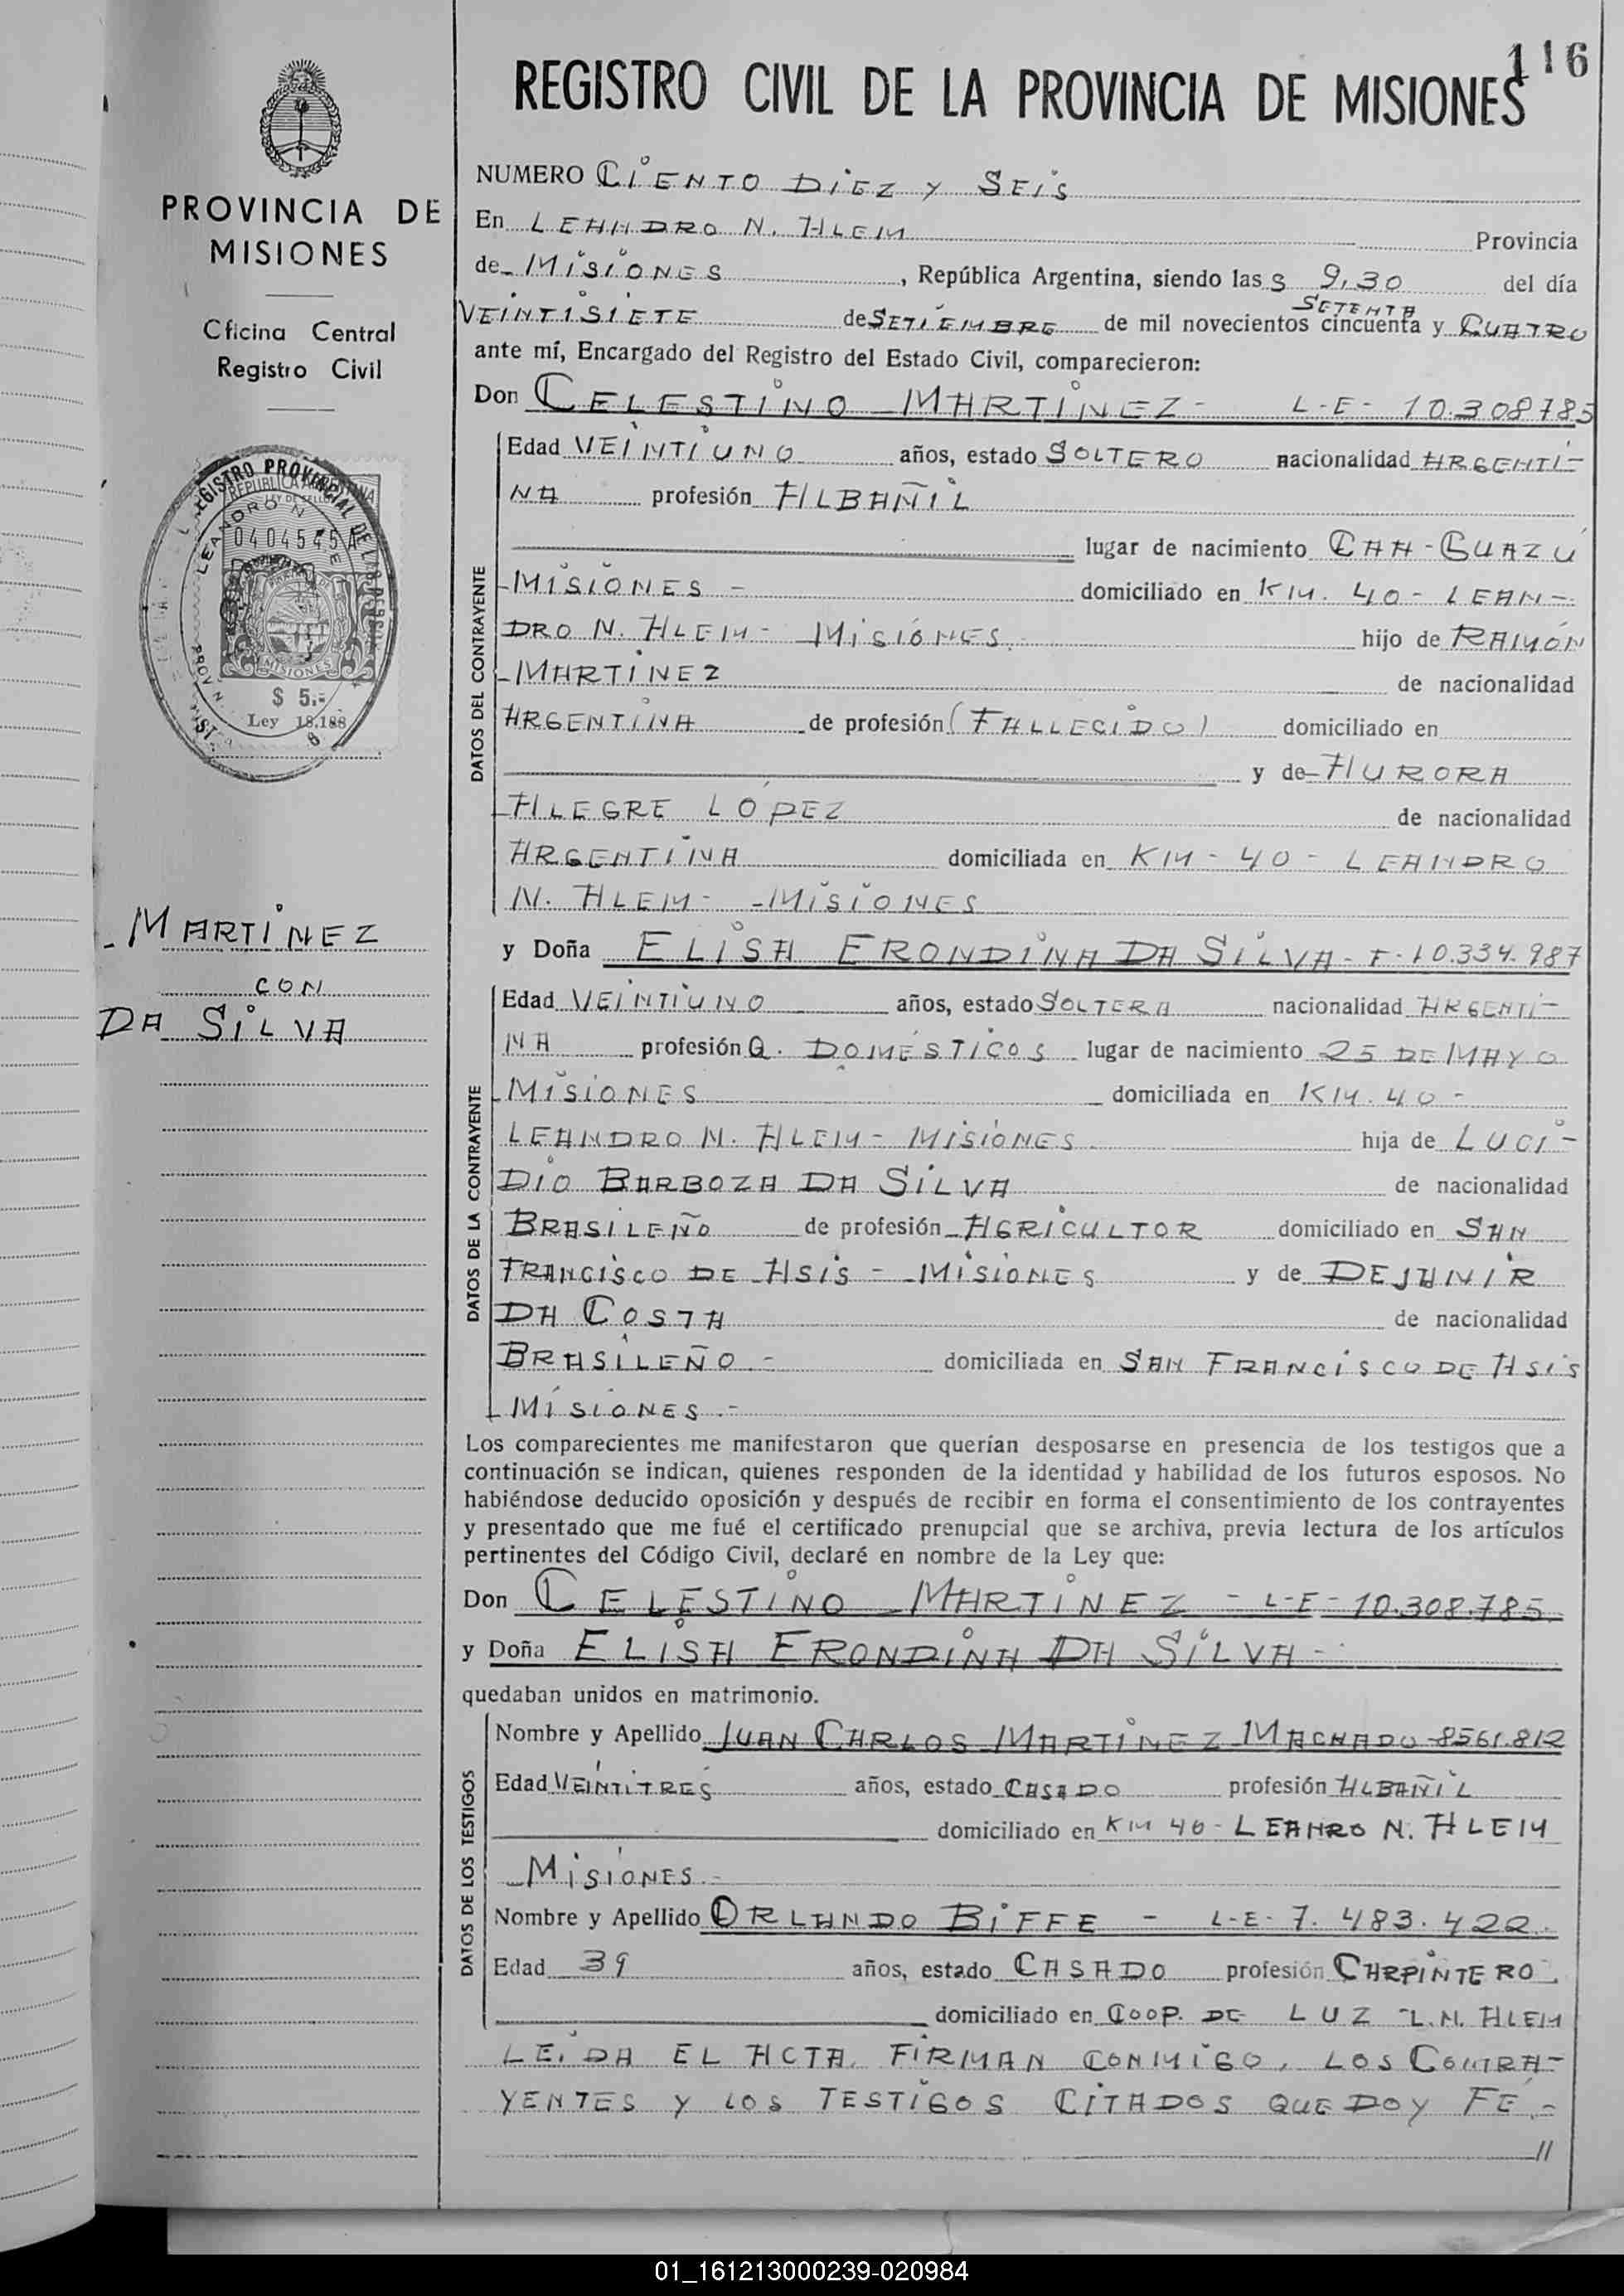 116
REGISTRO CIVIL DE LA PROVINCIA DE MISIONES
PROVINCIA DE
MISIONES
Oficina Central
Registro Civil
REGISTRO PROVINCIAL DE LAS
REPUBLICA ARGENTINA
LEY DE SELLOS
LEANDRO N.
0404545
MISIONES
$ 5.-
Ley 18.188
MARTINEZ
CON
DA SILVA
NUMERO CIENTO DIEZ Y SEIS
En LEANDRO N. ALEM Provincia
de MISIONES, República Argentina, siendo las 9,30 del día
SETENTA
VEINTISIETE de SETIEMBRE de mil novecientos cincuenta y CUATRO
ante mí, Encargado del Registro del Estado Civil, comparecieron:
Don CELESTINO MARTINEZ - L-E- 10.308785
DATOS DEL CONTRAYENTE
Edad VEINTIUNO años, estado SOLTERO nacionalidad ARGENTI-
NA profesión ALBAÑIL
lugar de nacimiento CAA-GUAZÚ
MISIONES - domiciliado en KM. 40 - LEAN-
DRO N. ALEM - MISIONES. hijo de RAMÓN
MARTINEZ de nacionalidad
ARGENTINA de profesión (FALLECIDO) domiciliado en
y de AURORA
ALEGRE LÓPEZ de nacionalidad
ARGENTINA domiciliada en KM - 40 - LEANDRO
N. ALEM - MISIONES
y Doña ELISA ERONDINA DA SILVA - F-10.334.987
DATOS DE LA CONTRAYENTE
Edad VEINTIUNO años, estado SOLTERA nacionalidad ARGENTI-
NA profesión Q. DOMÉSTICOS lugar de nacimiento 25 DE MAYO
MISIONES domiciliada en KM. 40 -
LEANDRO N. ALEM - MISIONES. hija de LUCI-
DIO BARBOZA DA SILVA de nacionalidad
BRASILEÑO de profesión AGRICULTOR domiciliado en SAN
FRANCISCO DE ASIS - MISIONES y de DEJANIR
DA COSTA de nacionalidad
BRASILEÑO.- domiciliada en SAN FRANCISCO DE ASIS
MISIONES.-
Los comparecientes me manifestaron que querían desposarse en presencia de los testigos que a
continuación se indican, quienes responden de la identidad y habilidad de los futuros esposos. No
habiéndose deducido oposición y después de recibir en forma el consentimiento de los contrayentes
y presentado que me fué el certificado prenupcial que se archiva, previa lectura de los artículos
pertinentes del Código Civil, declaré en nombre de la Ley que:
Don CELESTINO MARTINEZ - L-E- 10.308.785.
y Doña ELISA ERONDINA DA SILVA -
quedaban unidos en matrimonio.
DATOS DE LOS TESTIGOS
Nombre y Apellido JUAN CARLOS MARTINEZ MACHADO - 8561.812
Edad VEINTITRES años, estado CASADO profesión ALBAÑIL
domiciliado en KM 40 - LEANRO N. ALEM
MISIONES.-
Nombre y Apellido ORLANDO BIFFE - L-E- 7.483.422.
Edad 39 años, estado CASADO profesión CARPINTERO.
domiciliado en COOP. DE LUZ - L.N. ALEM
LEIDA EL ACTA, FIRMAN CONMIGO, LOS CONTRA-
YENTES Y LOS TESTIGOS CITADOS QUE DOY FÉ.-
//
01_161213000239-020984